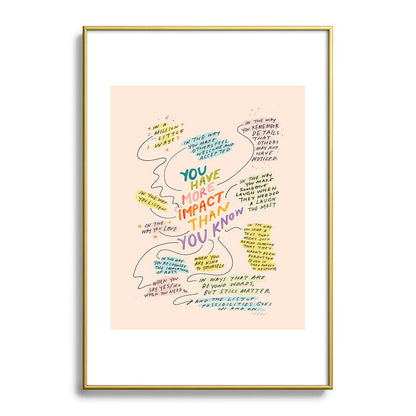 IN A
MILLION
LITTLE
WAYS
IN THE WAY
YOU MAKE
OTHERS FEEL
WELCOME AND
ACCEPTED
IN THE WAY
YOU REMEMBER
DETAILS
THAT
OTHERS
MAY NOT
HAVE
NOTICED
YOU
HAVE
MORE
IMPACT
THAN
YOU KNOW
IN THE WAY
YOU MAKE
SOMEONE
LAUGH WHEN
THEY NEEDED
A LAUGH
THE MOST
IN THE WAY
YOU LISTEN
IN THE
WAY YOU LOVE
IN THE WAY
YOU
THE IMPORTANCE
OF REST
WHEN YOU
ARE KIND
TO YOURSELF
WHEN YOU
SAY YES/NO
WHEN YOU NEED TO
IN WAYS THAT ARE
BEYOND WORDS,
BUT STILL MATTER
AND THE LIST OF
POSSIBILITIES GOES
ON AND ON